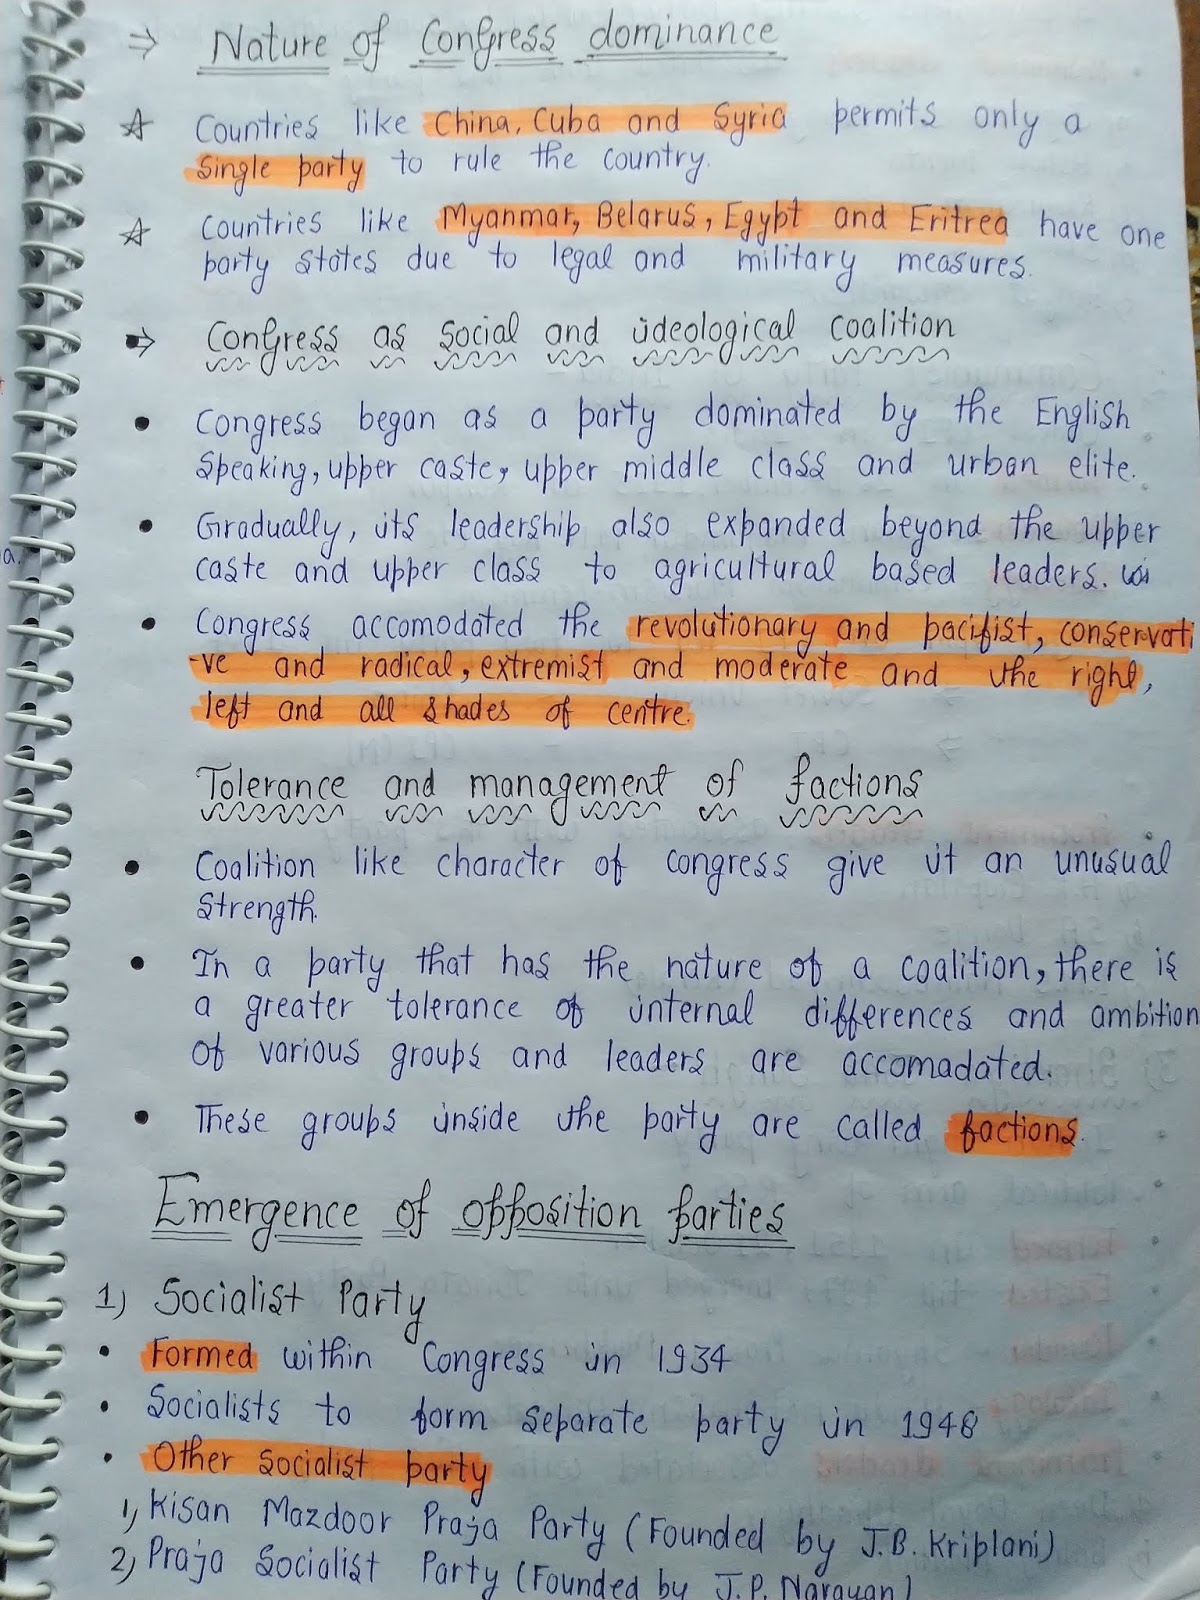 ⇒ Nature of Congress dominance
☆ Countries like China, Cuba and Syria permits only a
single party to rule the country.
☆ Countries like Myanmar, Belarus, Egypt and Eritrea have one
party states due to legal and military measures.
⇒ Congress as social and ideological coalition
• Congress began as a party dominated by the English
speaking, upper caste, upper middle class and urban elite.
• Gradually, its leadership also expanded beyond the upper
caste and upper class to agricultural based leaders.
• Congress accomodated the revolutionary and pacifist, conservati
-ve and radical, extremist and moderate and the right,
left and all shades of centre.
Tolerance and management of factions
• Coalition like character of congress give it an unusual
strength.
• In a party that has the nature of a coalition, there is
a greater tolerance of internal differences and ambition
of various groups and leaders are accomadated.
• These groups inside the party are called factions.
Emergence of opposition parties
1) Socialist Party
• Formed within Congress in 1934
• Socialists to form separate party in 1948
• Other socialist party
1) Kisan Mazdoor Praja Party (Founded by J.B. Kriplani)
2) Praja Socialist Party (Founded by J.P. Narayan)